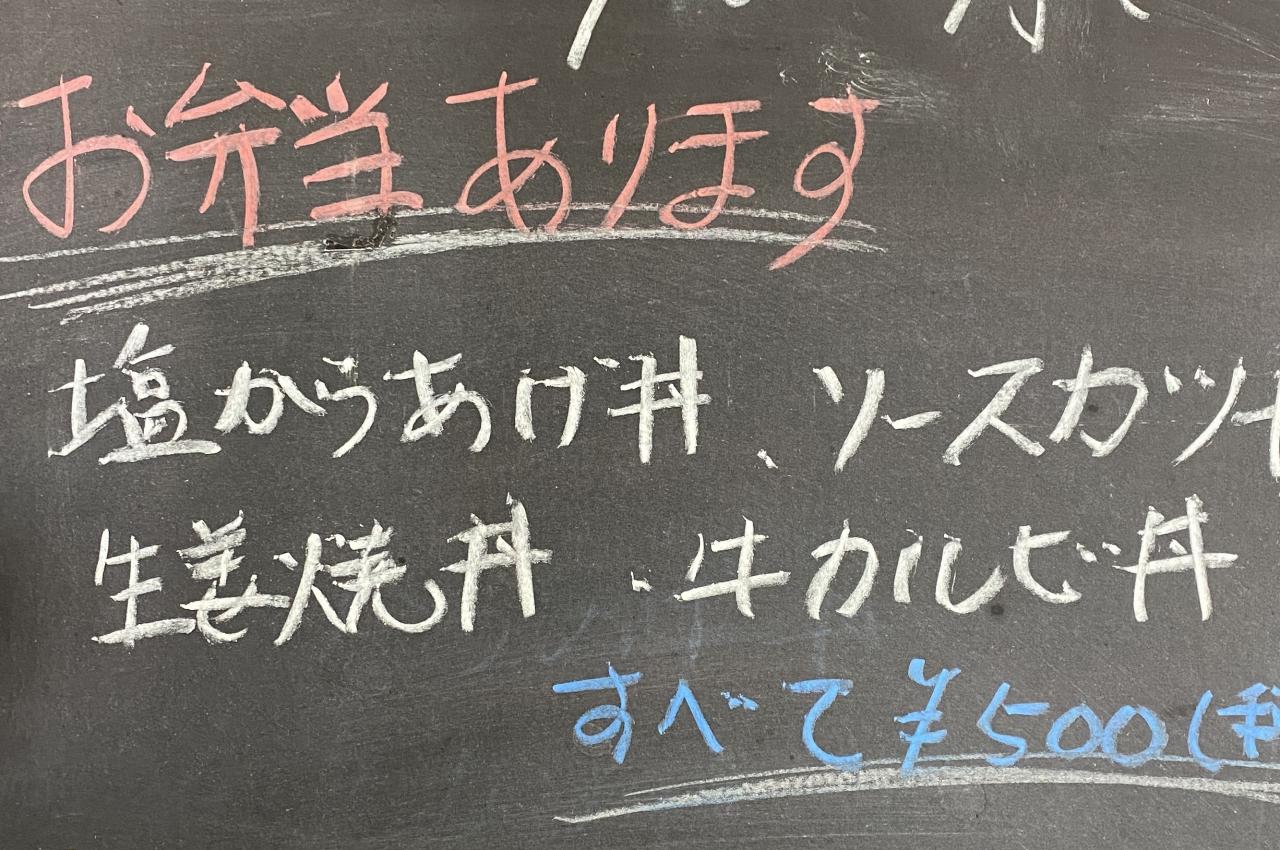 お弁当あります
塩からあげ丼、ソースカツ
生姜焼丼、牛カルビ丼
すべて¥500(